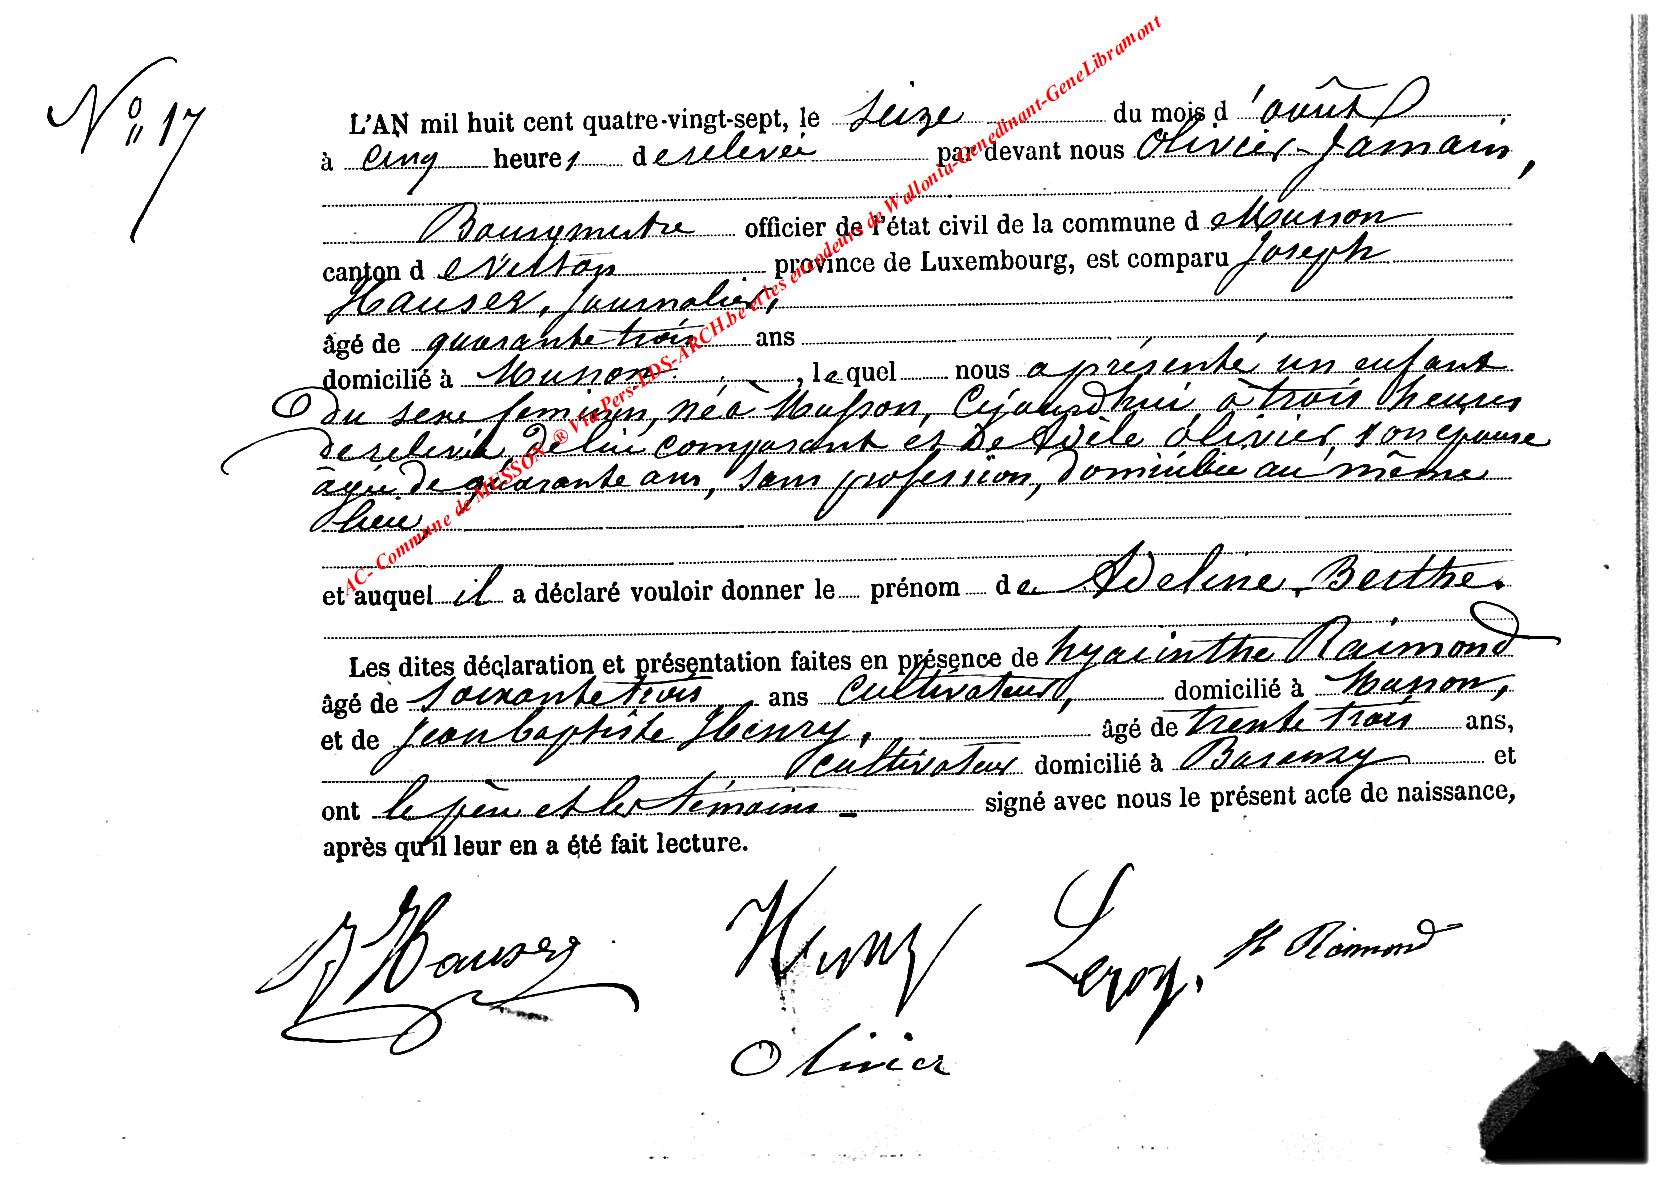 N° 17
L'AN mil huit cent quatre-vingt-sept, le seize du mois d'août
à cinq heures de relevée par devant nous Olivier Jamain,
Bourgmestre officier de l'état civil de la commune de Musson
canton de Virton province de Luxembourg, est comparu Joseph
Hauser, journalier,
âgé de quarante trois ans
domicilié à Musson, lequel nous a présenté un enfant
du sexe féminin, né à Musson, cejourdhui, à trois heures
de relevée, de lui comparant et de Adèle Olivier son épouse
âgée de quarante ans, sans profession, domiciliée au même
lieu
et auquel il a déclaré vouloir donner le prénom de Adeline, Berthe.
Les dites déclaration et présentation faites en présence de hyacinthe Raimond
âgé de soixante trois ans cultivateur, domicilié à Musson,
et de Jean baptiste Henry, âgé de trente trois ans,
cultivateur domicilié à Baranzy et
ont le père et les témoins signé avec nous le présent acte de naissance,
après qu'il leur en a été fait lecture.
J Hauser Henry Leroy. H Raimond
Olivier
AC- Commune de MUSSON ® Via Pers-EDS-ARCH.be et les encodeurs de Wallonia-Genedinant-GeneLibramont